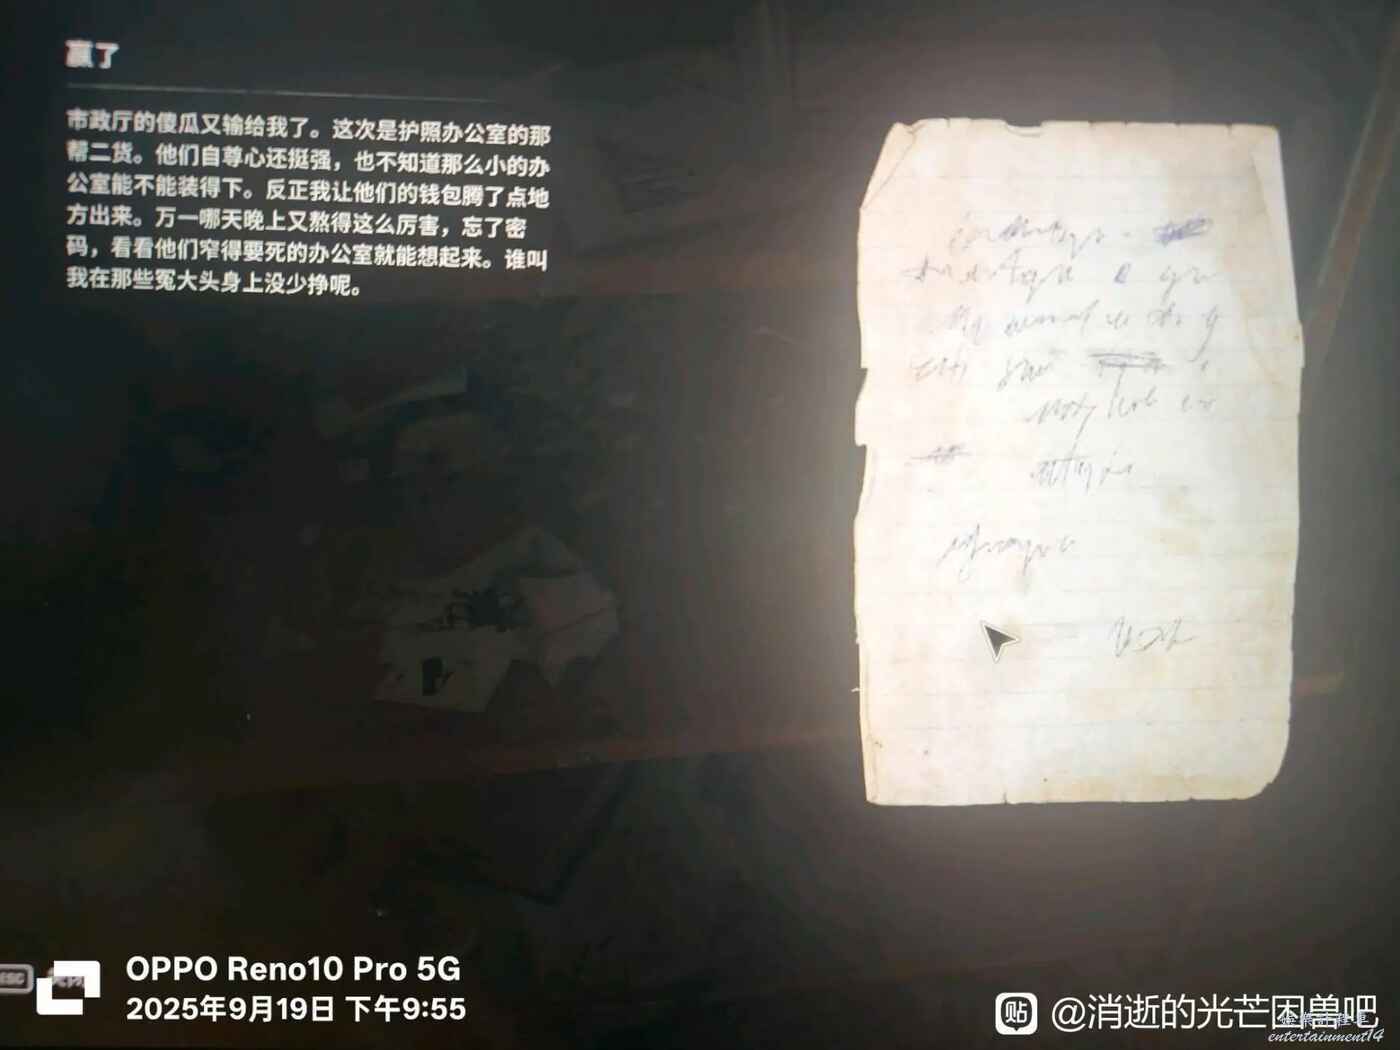 赢了
市政厅的傻瓜又输给我了。这次是护照办公室的那
帮二货。他们自尊心还挺强，也不知道那么小的办
公室能不能装得下。反正我让他们的钱包腾了点地
方出来。万一哪天晚上又熬得这么厉害，忘了密
码，看看他们窄得要死的办公室就能想起来。谁叫
我在那些冤大头身上没少挣呢。
ESC
OPPO Reno10 Pro 5G
2025年9月19日 下午9:55
贴 @消逝的光芒困兽吧
entertainment14